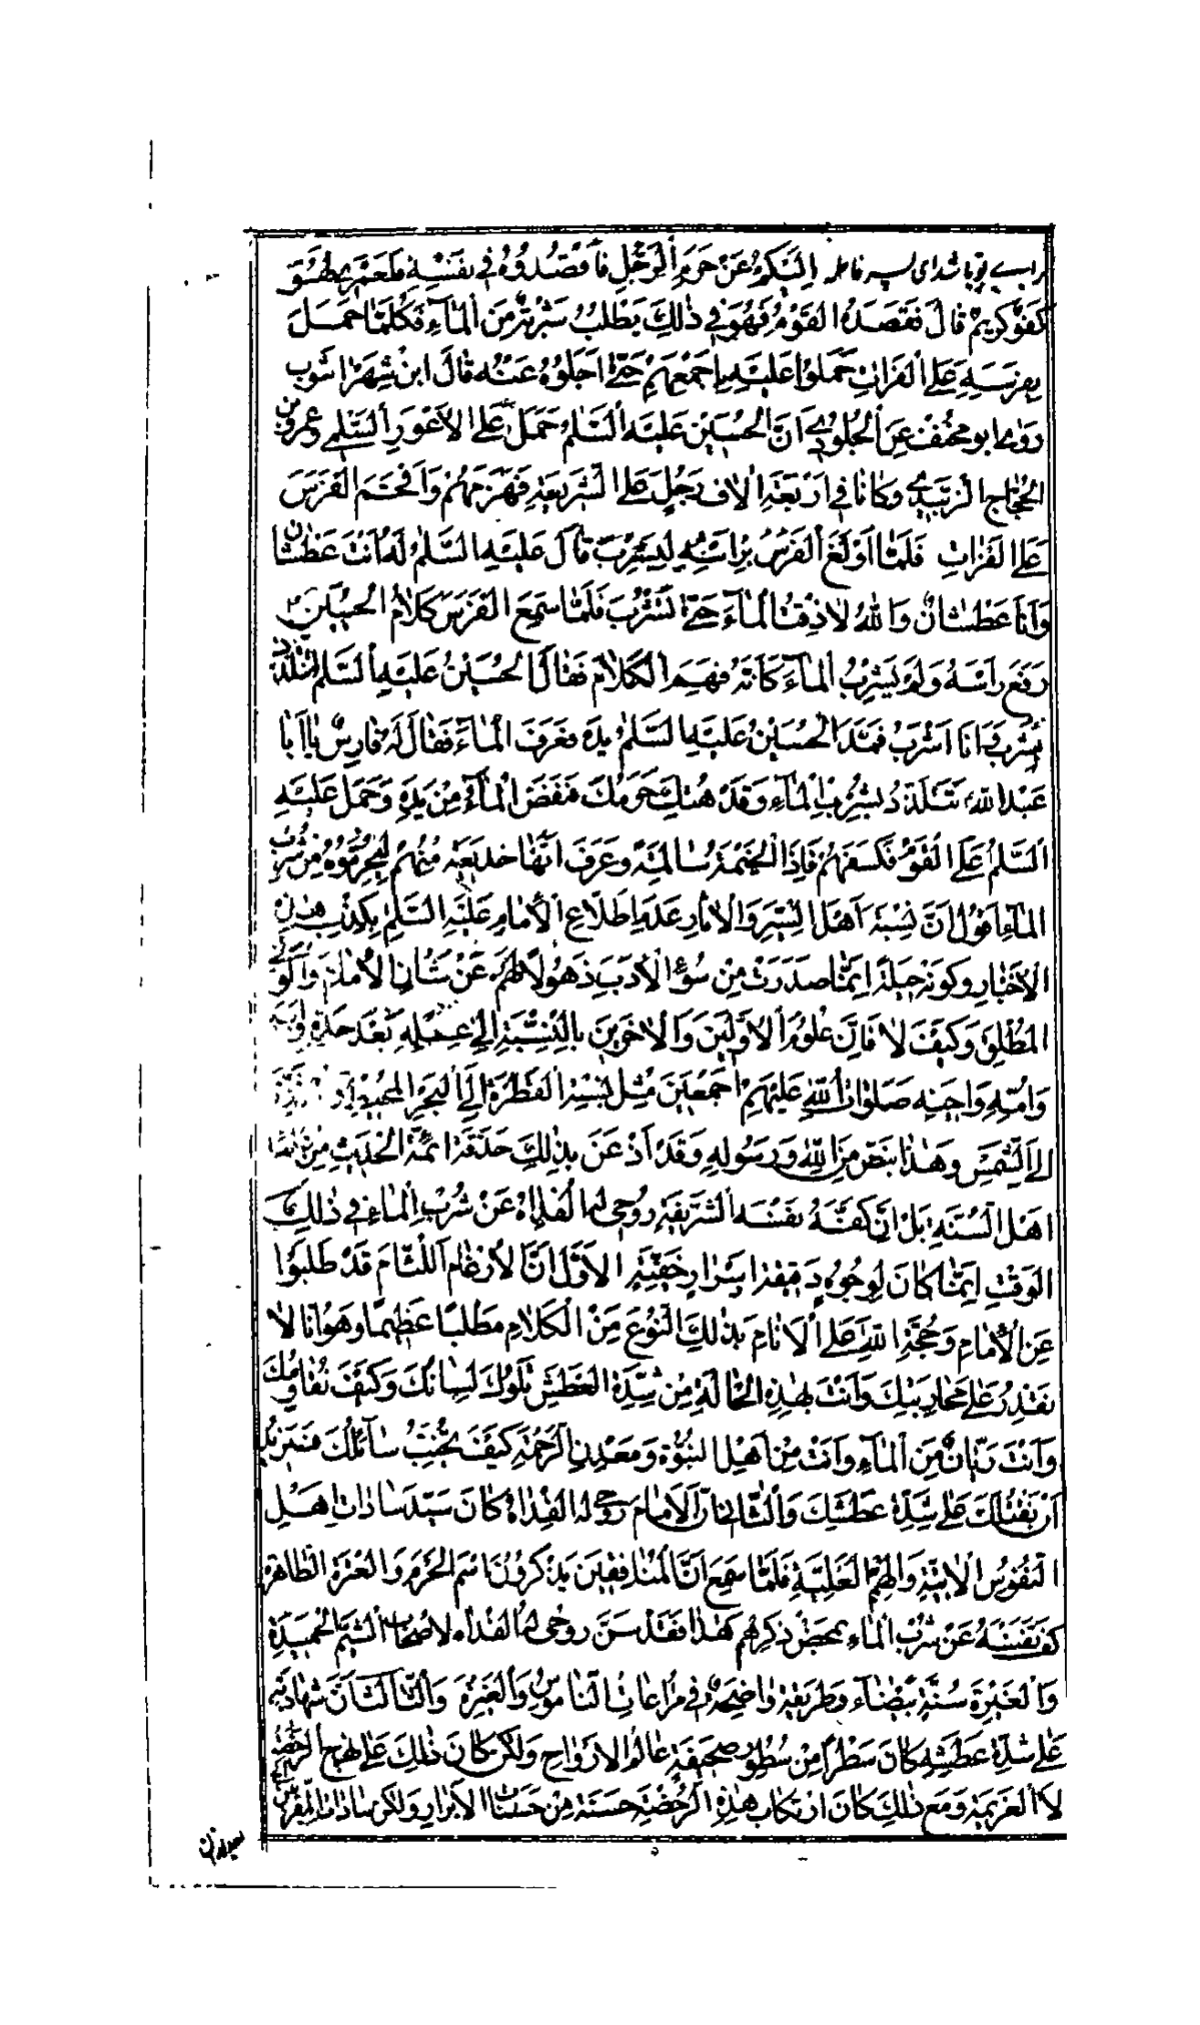 اليكم عن حرم الرجل فاقصدوه في نفسه فلعمري لهو
كفو كريم قال فقصده القوم فهو في ذلك يطلب شربة من الماء فكلما حمل
بفرسه على الفرات حملوا عليه باجمعهم حتى اجلوه عنه قال ابن شهراشوب
روى ابو مخنف عن الجلودي ان الحسين عليه السلم حمل على الاعور السلمي وعمرو بن
الحجاج الزبيدي وكانا في اربعة الاف رجل على الشريعة فهزمهم واقحم الفرس
على الفرات فلما اولغ الفرس براسه ليشرب قال عليه السلم له انت عطشان
وانا عطشان والله لا ذقت الماء حتى تشرب فلما سمع الفرس كلام الحسين
رفع راسه ولم يشرب الماء كانه فهم الكلام فقال الحسين عليه السلم
فانا اشرب فمد الحسين عليه السلم يده فغرف الماء فقال له فارس يا ابا
عبد الله تتلذذ بشرب الماء وقد هتك حرمك فنفض الماء من يده وحمل عليه
السلم على القوم فكشفهم فاذا الخيمة سالمة وعرف انها خديعة منهم ليحرموه من شرب
الماء اقول ان نسبة اهل السير والاثار عدم اطلاع الامام عليه السلم بكذب هذه
الاخبار وكونه حيلة انما صدرت من سوء الادب ذهولا لهم عن شان الامامة
المطلق وكيف لا فان علوم الاولين والاخرين بالنسبة الى علمه بعد جده وابيه
وامه واخيه صلوات الله عليهم اجمعين مثل نسبة القطرة الى البحر المحيط
الى الشمس وهذا بنص من الله ورسوله وقد اذعن بذلك حذقة ائمة الحديث من
اهل السنة بل ان كفه نفسه الشريفة روحي له الفداء عن شرب الماء في ذلك
الوقت انما كان لوجوه دقيقة واسرار خفية الاول ان الارغام اللئام قد طلبوا
عن الامام وحجة الله على الانام بذلك النوع من الكلام مطلبا عظيما وهو انا لا
نقدر على محاربتك وانت بهذه الحالة من شدة العطش تلوك لسانك وكيف نقاومك
وانت ريان من الماء وانت من اهل النبوة ومعدن الرحمة كيف تخيب سائلك
ان يقتلك على شدة عطشك والثاني ان الامام روحي له الفداء كان سيد سادات اهل
النفوس الابية والهمم العلية فلما سمع ان المنافقين يذكرون اسم الحرم والعترة الطاهرة
كف نفسه عن شرب الماء بمحض ذكرهم هذا فقد سن روحي له الفداء لاصحاب الشيم الحميدة
والغيرة سنة بيضاء وطريقة واضحة في مراعات الناموس والغيرة والثالث ان شهادته
على شدة عطشه كان سطرا من سطور صحيفة عالم الارواح ولكن كان ذلك على نهج الرخصة
لا العزيمة ومع ذلك كان ارتكاب هذه الرخصة حسنة من حسنات الابرار ولكن سادات المقربين